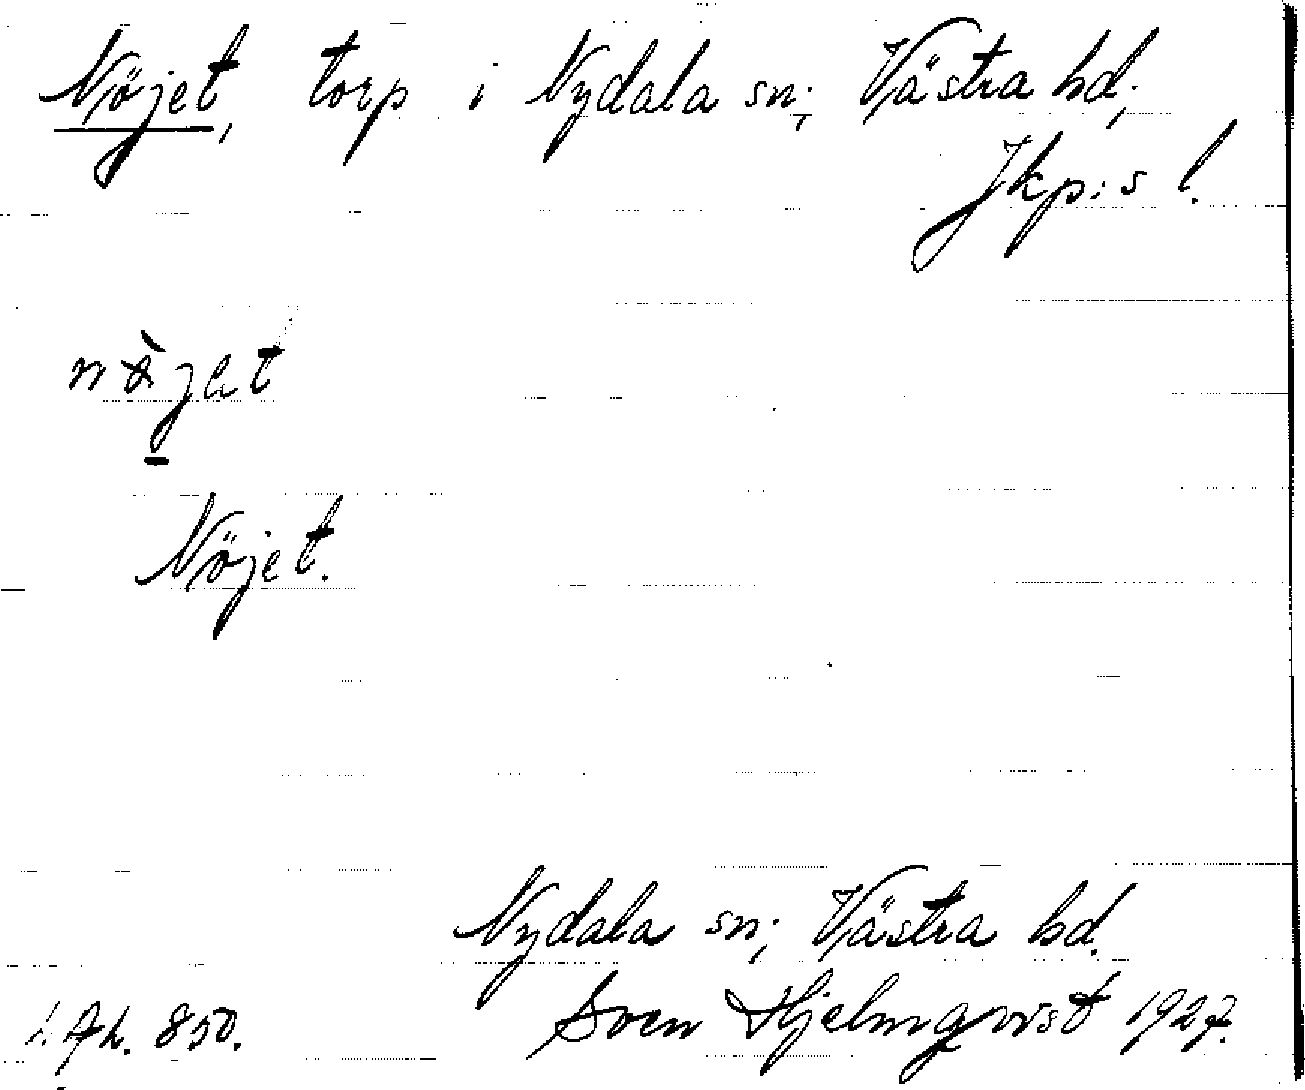 Nöjet, torp i Nydala sn; Västra hd;
Jkp:s l.
Nöjet.
Nydala sn; Västra hd.
Sven Hjelmqvist 1927.
850.